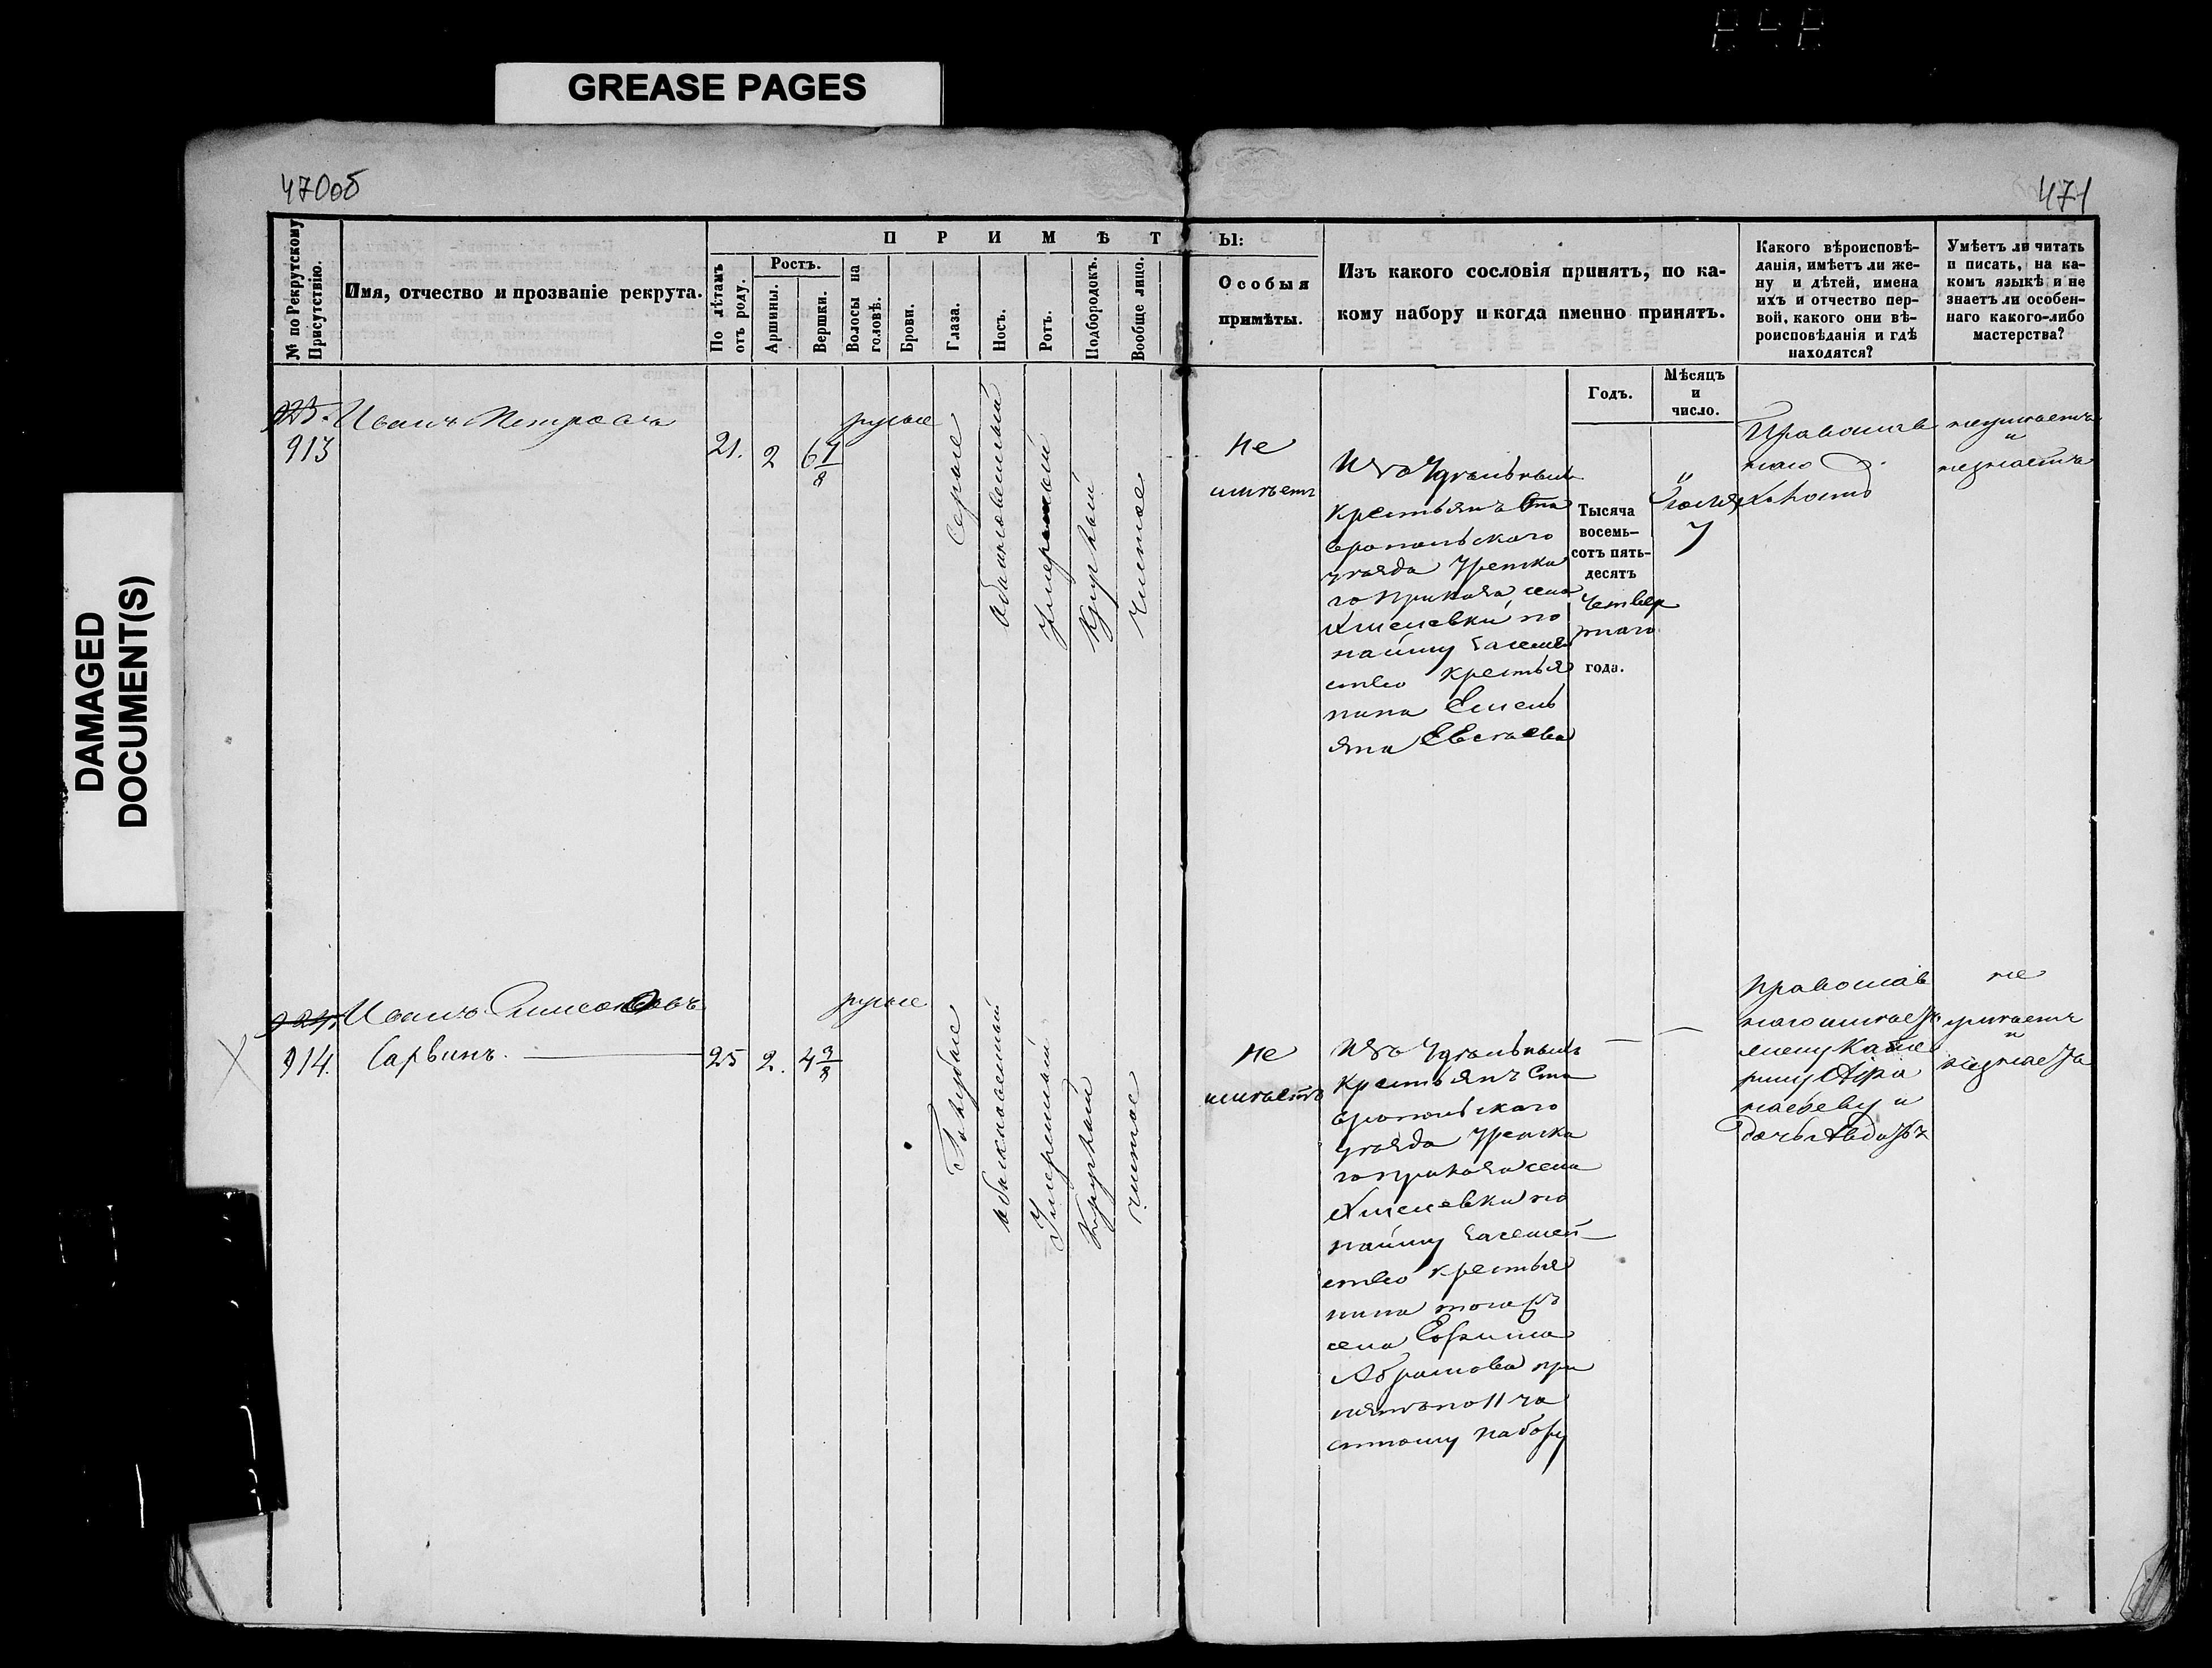 GREASE PAGES
DAMAGED
DOCUMENT(S)
470об
471
№ по Рекрутскому
Присутствію.
Имя, отчество и прозваніе рекрута.
П Р И М Ѣ Т Ы:
По лѣтамъ
отъ роду.
Ростъ.
Аршины.
Вершки.
Волосы на
головѣ.
Брови.
Глаза.
Носъ.
Ротъ.
Подбородокъ.
Вообще лицо.
Особыя
примѣты.
Изъ какого сословія принятъ, по ка-
кому набору и когда именно принятъ.
Какого вѣроисповѣ-
данія, имѣетъ ли же-
ну и дѣтей, имена
ихъ и отчество пер-
вой, какого они вѣ-
роисповѣданія и гдѣ
находятся?
Умѣетъ ли читать
и писать, на ка-
комъ языкѣ и не
знаетъ ли особен-
наго какого-либо
мастерства?
Годъ.
Мѣсяцъ
и
число.
913
Иванъ Петровъ
21.
2
6 7/8
русые
Серые
обыкновенный
умеренный
Круглый
чистое
Не
имѣетъ
Изъ Удѣльныхъ
крестьянъ Ста
вропольскаго
уѣзда Урепка
го приказа села
Хмелевки по
найму
крестья
нина Емель
яна
Тысяча
восемь-
сотъ пять-
десятъ
Четвер
таго
года.
Іюля
7
Православ
наго
Холостъ
неумѣетъ
и
незнаетъ
914.
Иванъ
Сарвинъ.
25
2.
4 3/8
русые
Голубые
обыкновенный
Умеренный
Круглый
чистое
Не
имѣетъ
Изъ Удѣльныхъ
Крестьянъ Ста
вропольскаго
уѣзда Урепка
го приказа села
Хмелевки по
найму
крестья
нина тогожъ
села Ефима
Абрамова при
нятъ по 11 ча
стному набору
Православ
наго имѣетъ
жену Кате
рину Афа
насьеву и
дочь Авдотью
не
умѣетъ
и
незнаетъ